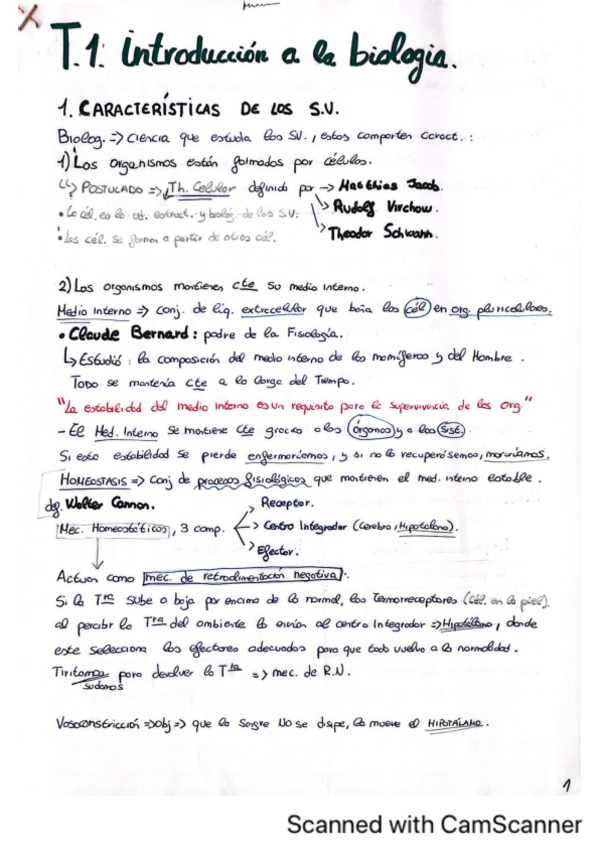 T.1: introducción a la biologia.
1. CARACTERÍSTICAS DE LOS S.V.
Biolog. => Ciencia que estudia los SV., estos comparten caract.:
1) Los organismos están formados por células.
↳ POSTULADO => Th. Celular definida por → Matthias Jacob.
• La cél. es la ud. estruct. y biológ. de los S.V. ↘ Rudolf Virchow.
• Las cél. se forman a partir de otras cél. ↘ Theodor Schwann.
2) Los organismos mantienen cte su medio interno.
Medio Interno => conj. de líq. extracelular que baña las cél en org. pluricelulares.
• Claude Bernard: padre de la Fisiología.
↳ Estudió: la composición del medio interno de los mamíferos y del Hombre.
Todo se mantenía cte a lo largo del Tiempo.
"La estabilidad del medio interno es un requisito para la supervivencia de los org"
- El Med. Interno se mantiene cte gracias a los órganos y a los Sist.
Si esta estabilidad se pierde enfermaríamos, y si no la recuperásemos, moriríamos.
HOMEOSTASIS => Conj de procesos fisiológicos que mantienen el med. interno estable.
def. Walter Cannon. → Receptor.
Mec. Homeostáticos, 3 comp. → Centro Integrador (Cerebro, Hipotálamo).
→ Efector.
Actúan como mec. de retroalimentación negativa.
Si la Tra sube o baja por encima de lo normal, los Termorreceptores (cél. en la piel).
al percibir la Tra del ambiente lo envían al centro Integrador => Hipotálamo, donde
este selecciona los efectores adecuados para que todo vuelva a la normalidad.
Tiritamos para devolver la Tra => mec. de R.N.
sudamos
Vasoconstricción => obj => que la sangre No se disipe, lo mueve el HIPOTÁLAMO.
1
Scanned with CamScanner